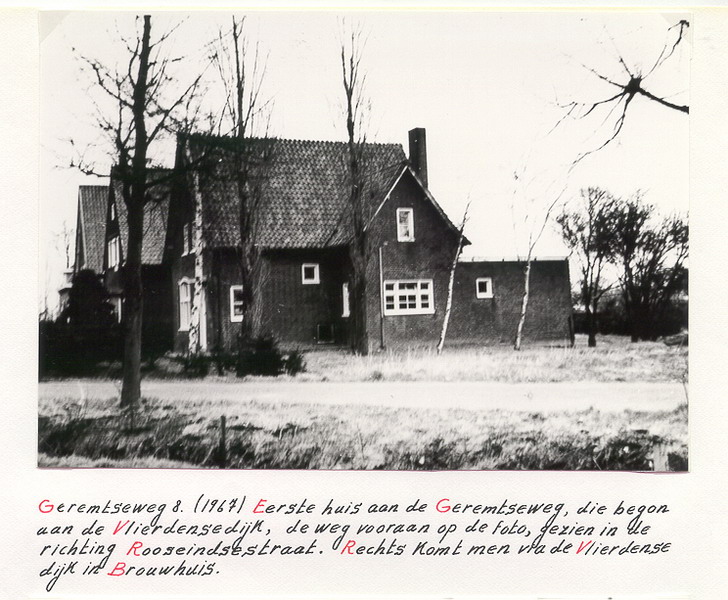 Geremtseweg 8. (1967) Eerste huis aan de Geremtseweg, die begon
aan de Vlierdensedijk, de weg vooraan op de foto, gezien in de
richting Rooseindsestraat. Rechts komt men via de Vlierdense
dijk in Brouwhuis.